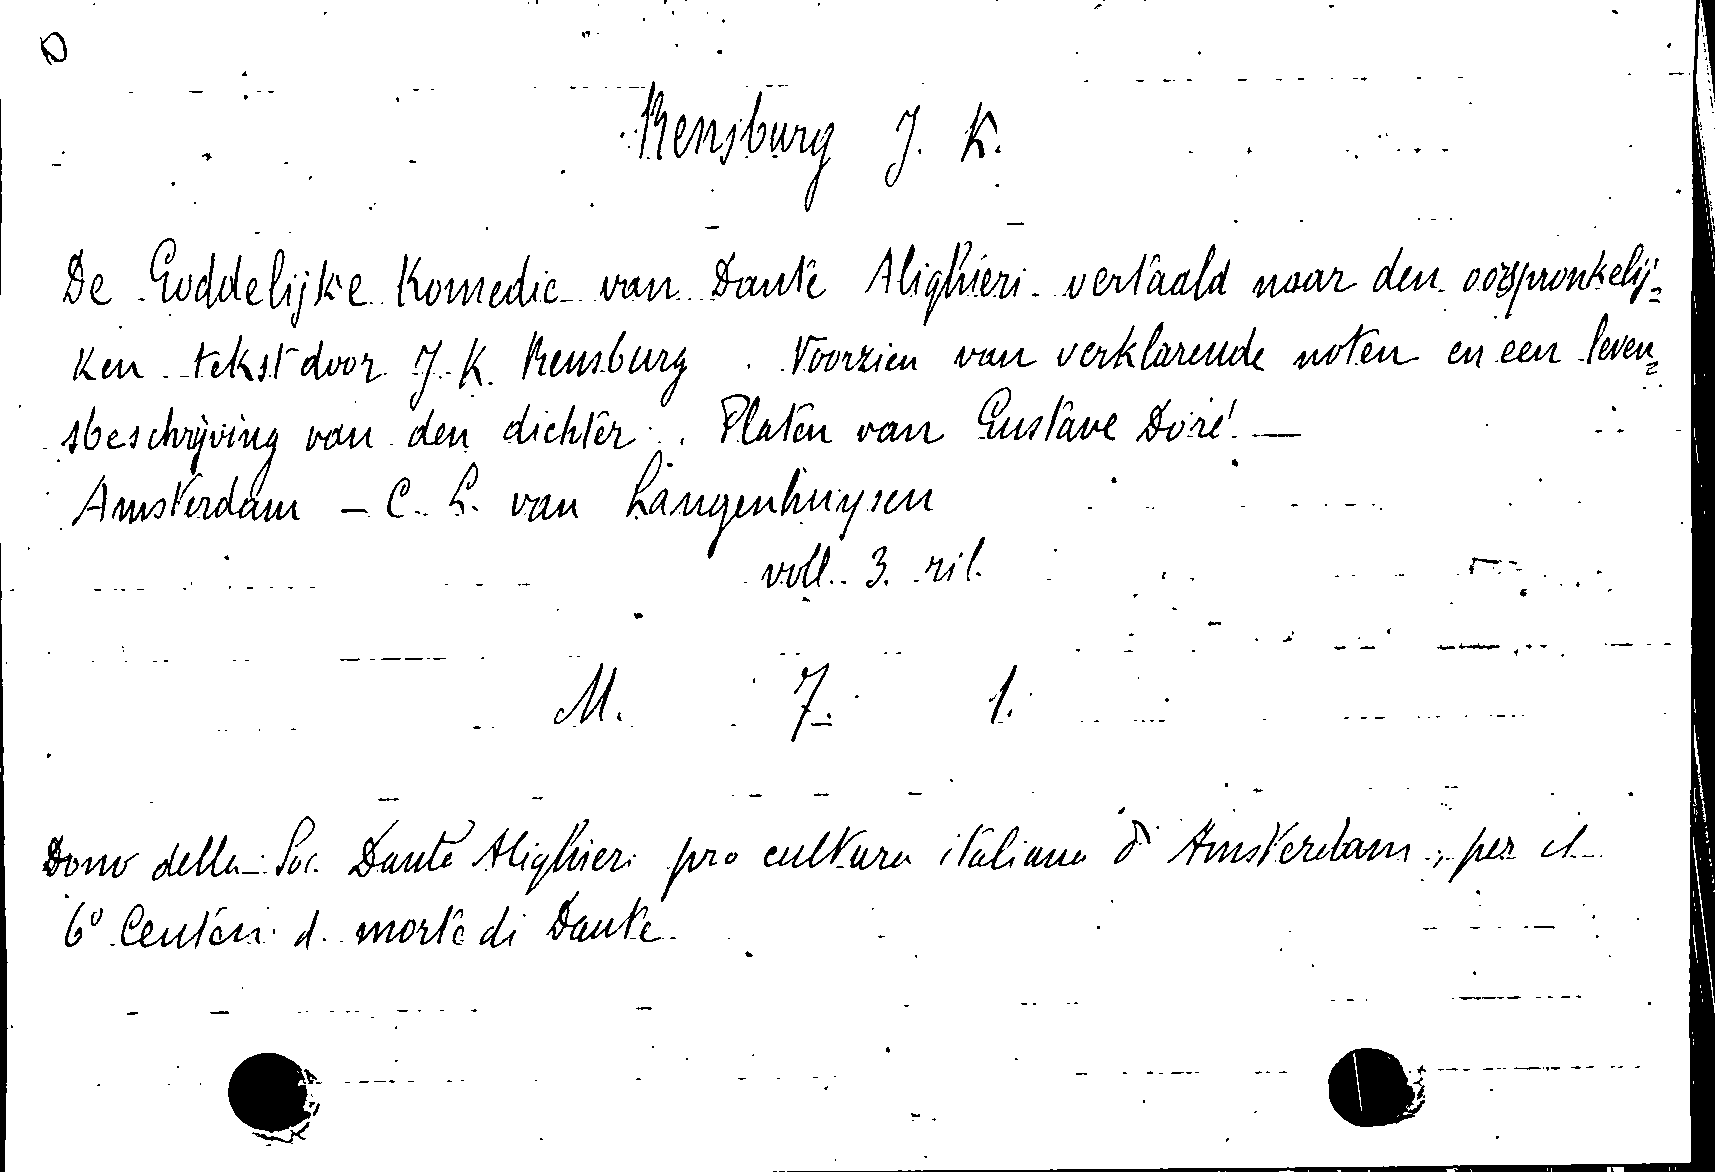 D
Rensburg J. K.
De Goddelijke Komedie van Dante Alighieri vertaald naar den oorspronkelij=
ken tekst door J. K. Rensburg. Voorzien van verklarende noten en een leven=
sbeschrijving van den dichter. Platen van Gustave Doré. —
Amsterdam – C. L. van Langenhuysen
voll. 3. ril.
M. 7. 1.
Dono della Soc. Dante Alighieri pro cultura italiana di Amsterdam, per il
6º Centen. d. morte di Dante.